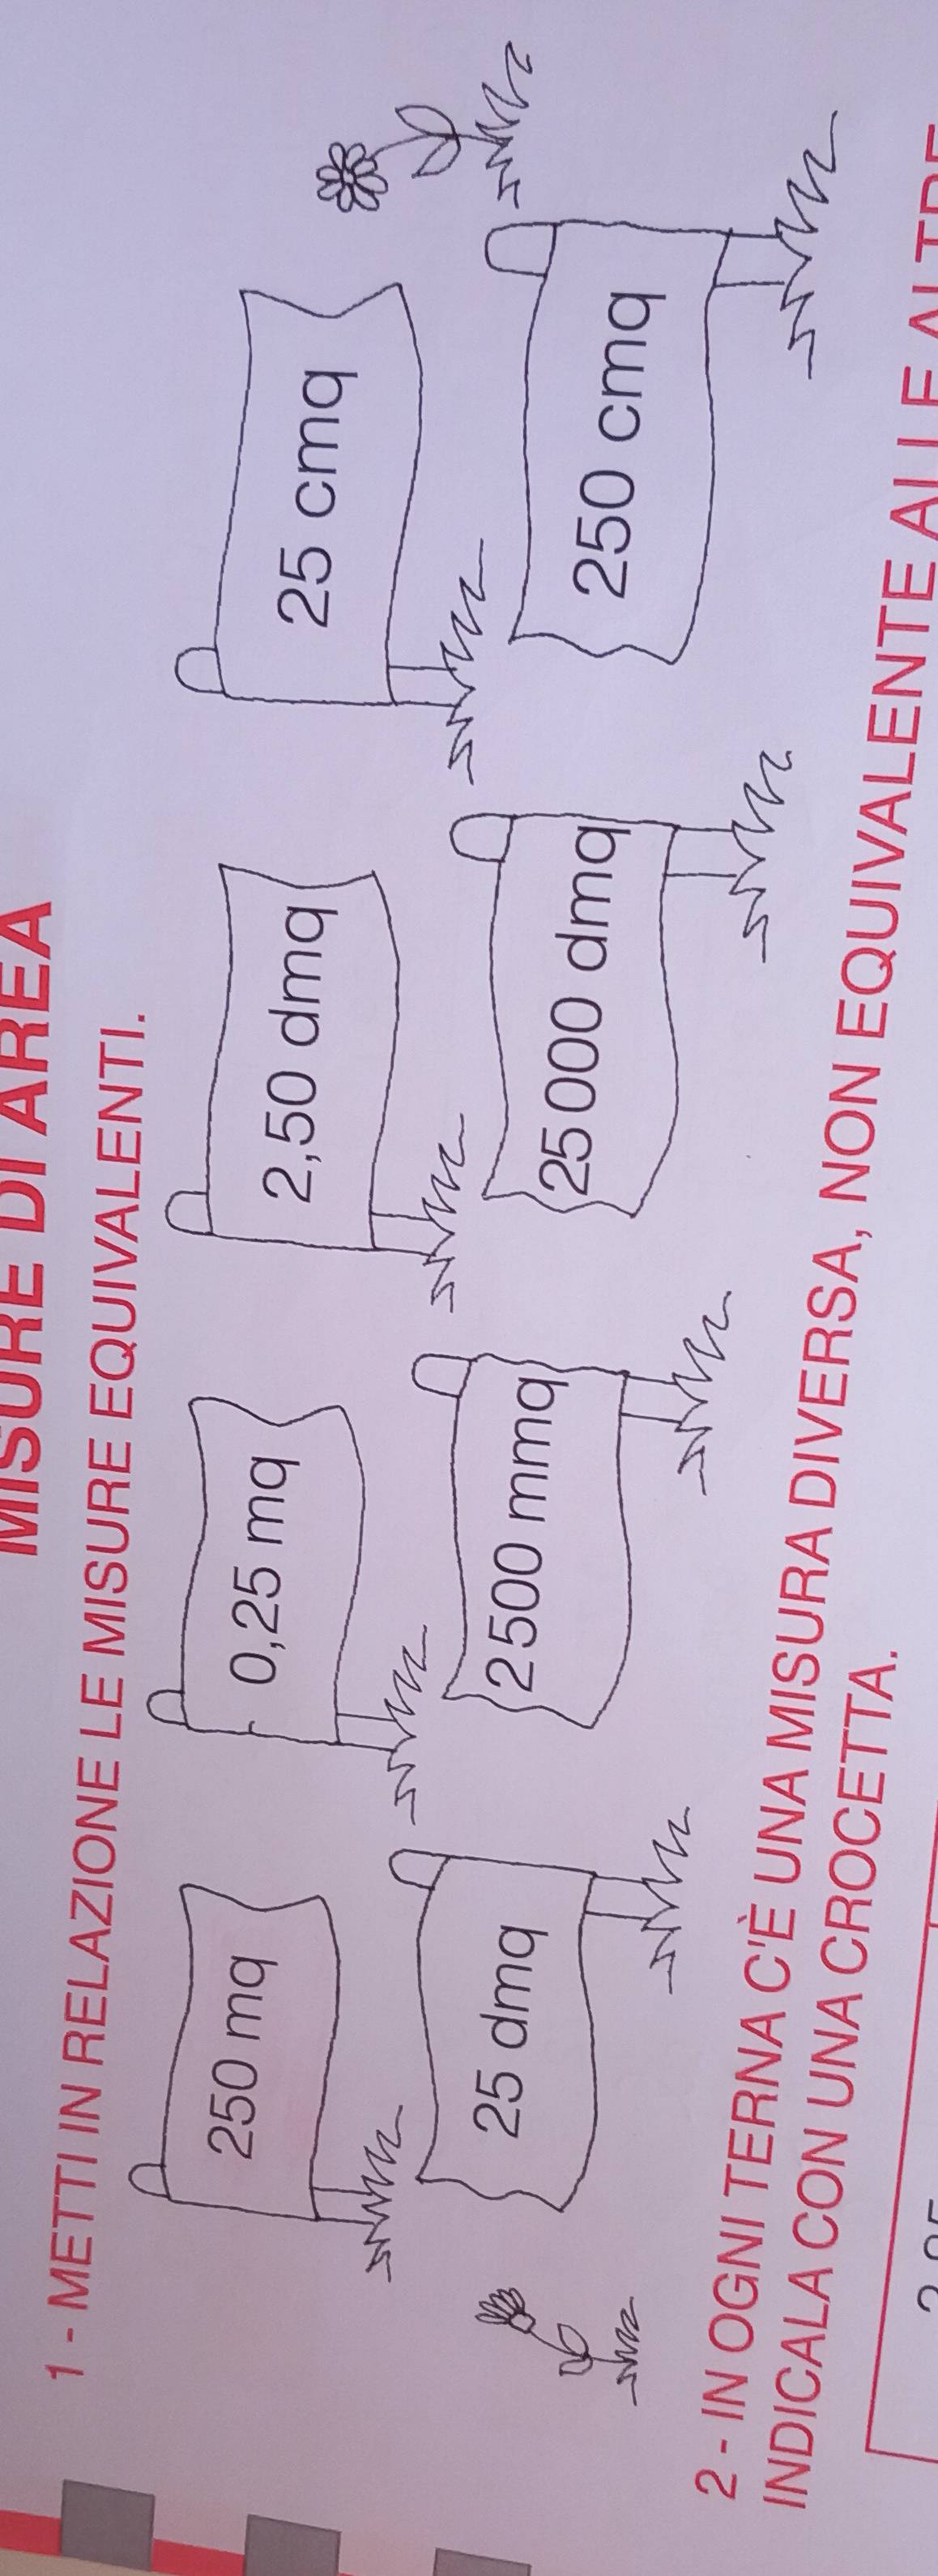 MISURE DI AREA
1 - METTI IN RELAZIONE LE MISURE EQUIVALENTI.
250 mq
0,25 mq
2,50 dmq
25 cmq
25 dmq
2 500 mmq
25 000 dmq
250 cmq
2 - IN OGNI TERNA C'È UNA MISURA DIVERSA, NON EQUIVALENTE ALLE ALTRE
INDICALA CON UNA CROCETTA.